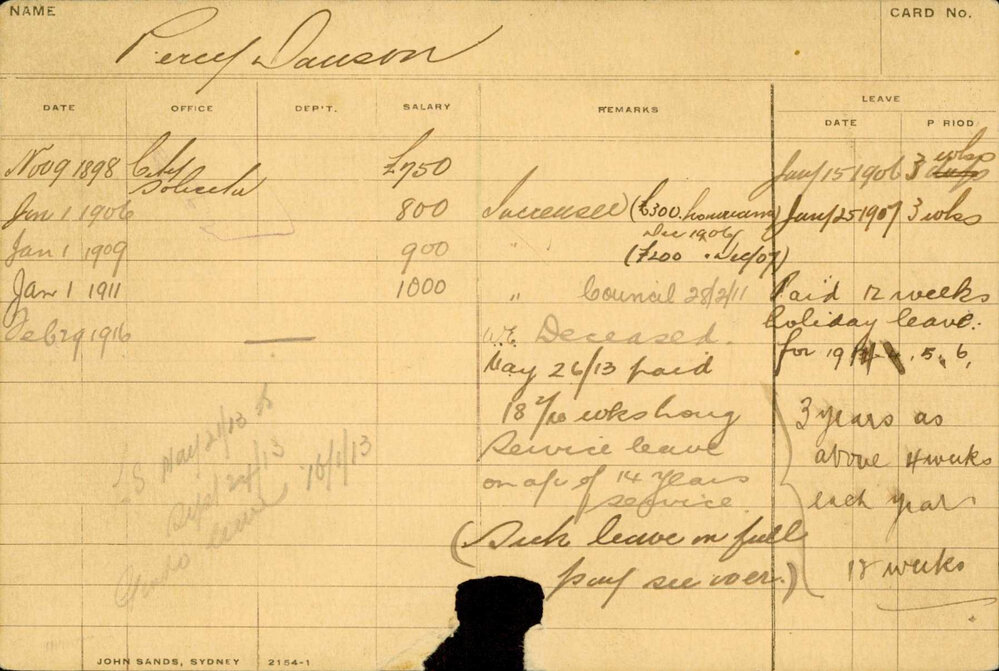 NAME
CARD No.
Percy Dawson
DATE OFFICE DEP'T. SALARY REMARKS LEAVE
DATE P RIOD
Nov 9 1898 City £750 Jany 15 1906 3 wks
Solicitor days
Jan 1 1906 800 Increased (£300. honorarium Jany 25 1907 3 wks
Dec 1906
Jan 1 1909 900 " (£200 . Dec/07)
Jan 1 1911 1000 " Council 28/2/11 Paid 12 weeks
Feb 29 1916 — Deceased. holiday leave.
May 26/13 paid for 191 4. 5. 6.
18 wks long 3 years as
Service leave above 4 weeks
on a/c of 14 years each year
service.
(Sick leave on full
pay see over.) 12 weeks
LS May 21/13 to
Sept 24/13
leave 16/1/13
JOHN SANDS, SYDNEY 2154-1